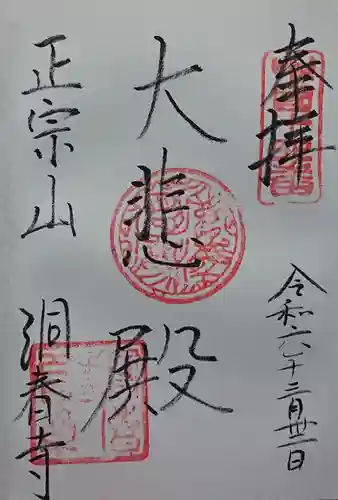 奉拝
令和六年十二月卅一日
大悲殿
正宗山
洞春寺